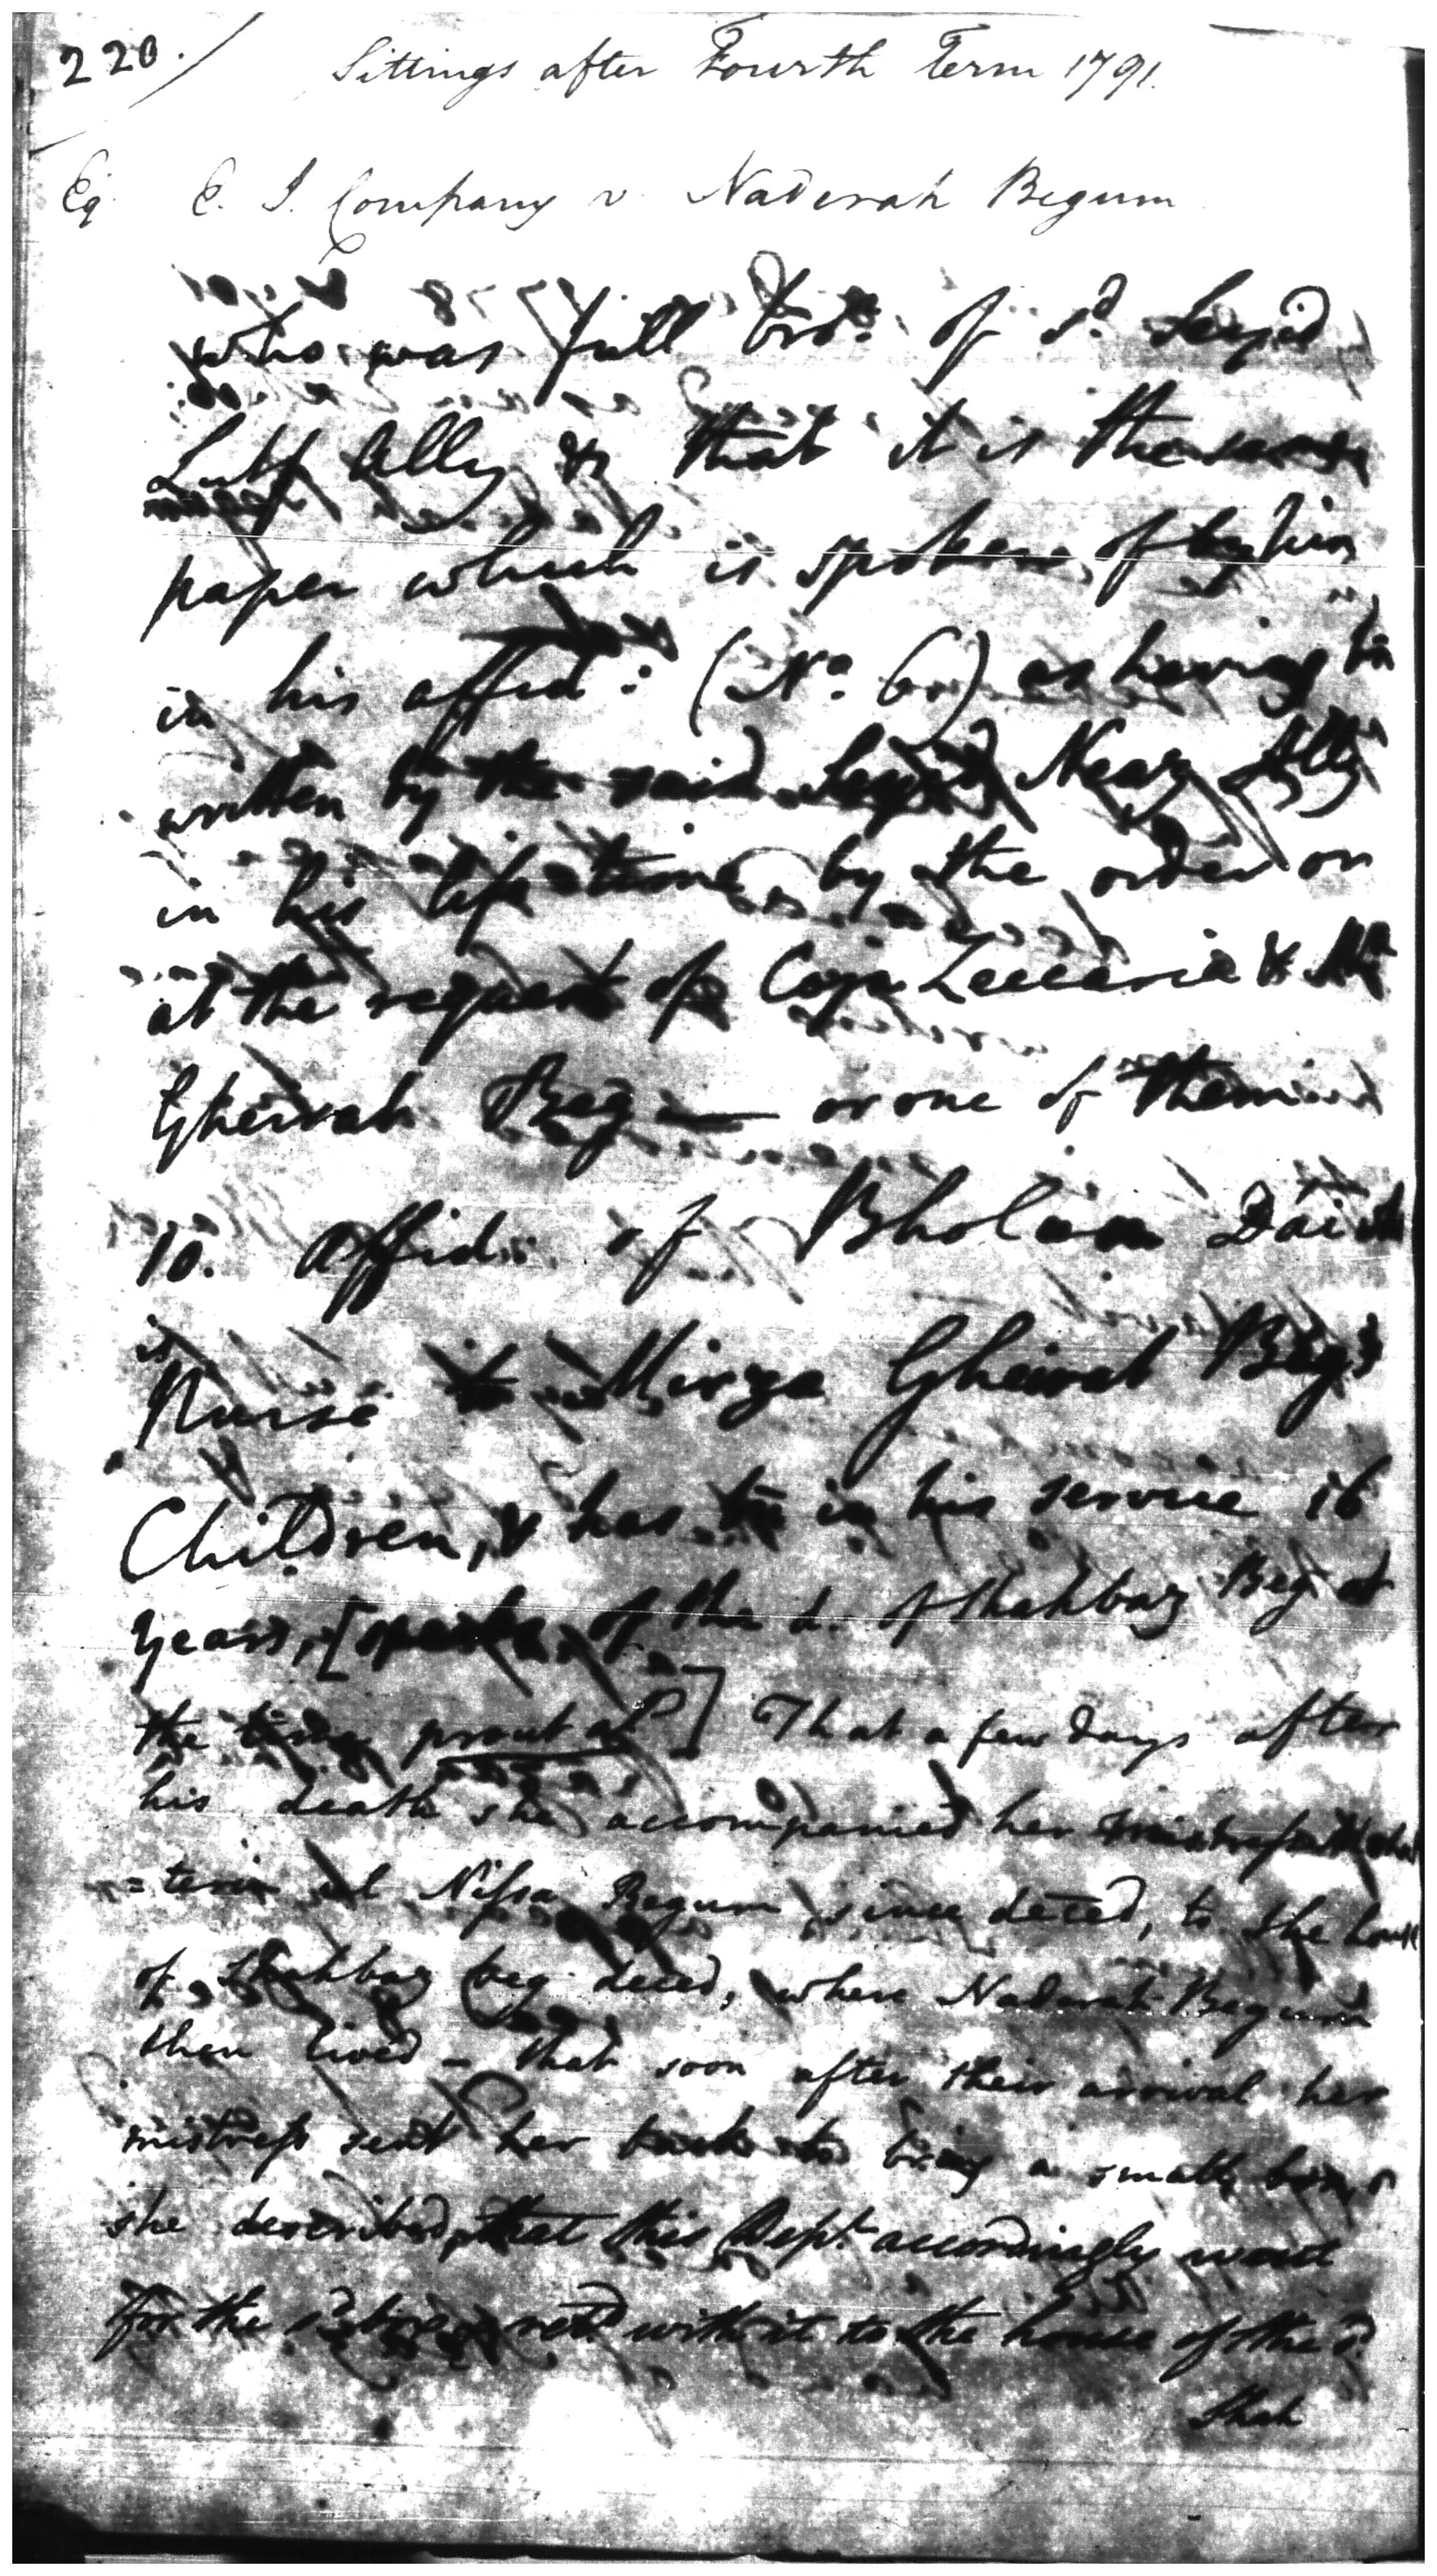 220.
Sittings after Fourth Term 1791.
Eq. E. I. Company v. Naderah Begum
who was full bror. of sd. Seyid
Lutf Ally & that it is the same
paper which is spoken of by him
in his affid: (No. 6) as having bn
written by the said Seyid Neaz Ally
in his life time, by the order or
at the request of Coja Zeccaria & Mirza
Gheirat Beg or one of them
10. Affid. of Bholan Dai
is
Nurse to Mirza Gheirat Beg's
Children, & has bn in his service 16
years, [speaks of the d. of Shahbaz Beg at
the time prout al] That a few days after
his death she accompanied her mistress
=term ul Nissa Begum, since deced, to the house
of Shahbaz beg deced, where Naderah Begum
then lived - that soon after their arrival her
mistress sent her back to bring a small box,
she described, that this Dept. accordingly went
for the sd. box & retd. with it to the house of the sd.
Shah